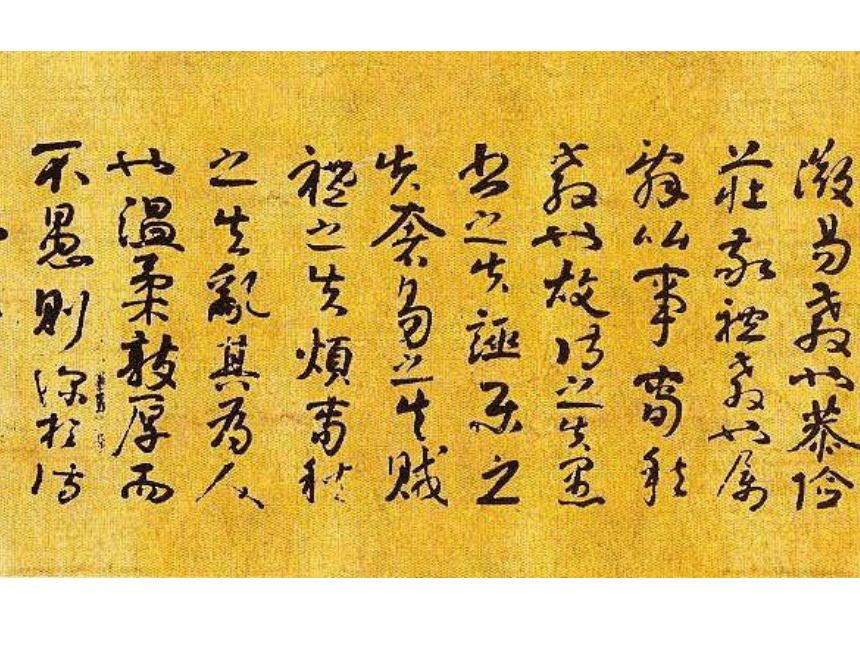 微易教也恭儉
莊敬禮教也屬
辭比事春秋
教也故詩之失愚
書之失誣樂之
失奢易之失賊
禮之失煩春秋
之失亂其為人
也溫柔敦厚而
不愚則深於詩